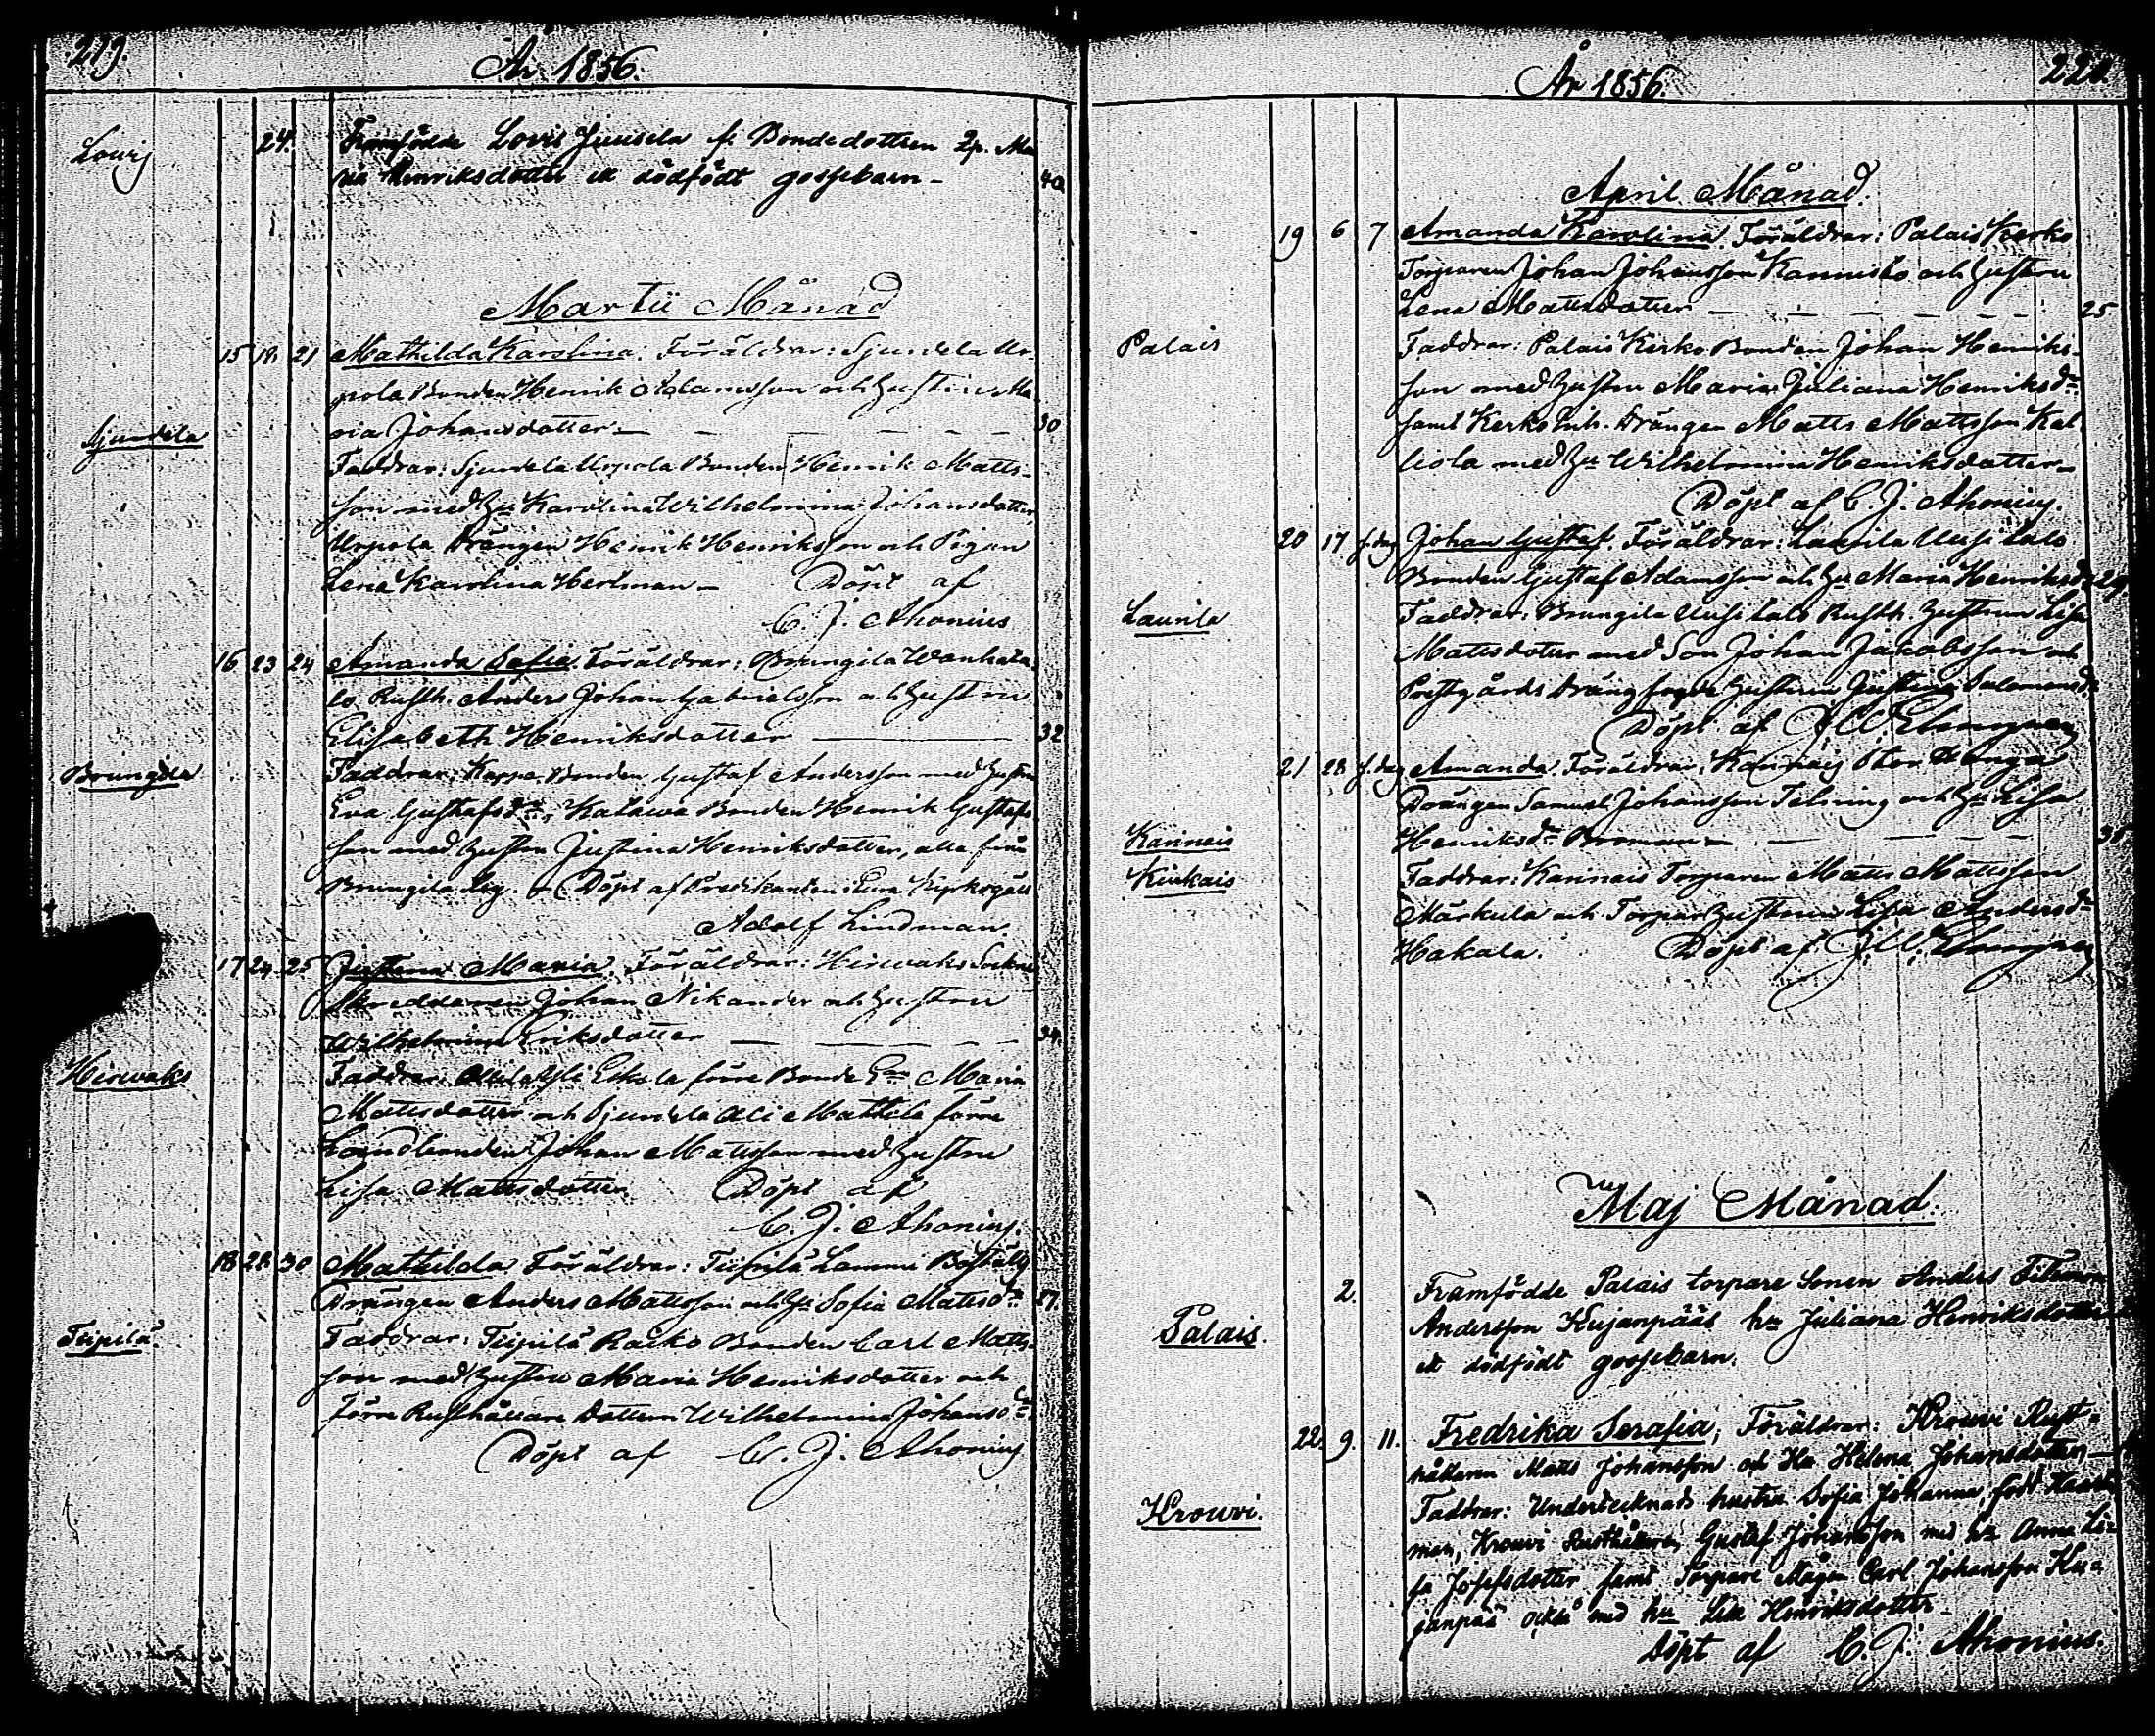 219.
År 1856.
Lovis
24. Framfödde Lovis Juusela f. Bondedottren Ma
ria Henriksdotter ett dödfödt gossebarn – 40
Martii Månad
15 18 21 Mathilda Karolina. Föräldrar: Sjundela Ur
pola Bonden Henrik Adamsson och Hustru Ma
ria Johansdotter – 30
Sjundela
Faddrar: Sjundela Urpola Bonden Henrik Matts-
son med Hu Karolina Wilhelmina Johansdotter,
Urpola Drängen Henrik Henriksson och Pigan
Lena Karolina Hertman – Döpt af
C. J. Ahonius
16 23 24 Amanda Sofia. Föräldrar: Brungila Wanhata
lo Rusth. Anders Johan Gabrielsson och Hustru
Elisabeth Henriksdotter 32
Brungila
Faddrar: Kappa Bonden Gustaf Andersson med Hustru
Eva Gustafsdr, Katawa Bonden Henrik Gustafs
son med Hustru Justina Henriksdotter, alla från
Brungila by. – Döpt af Predikanten i Eura Kyrkogäll
Adolf Lindman.
17 24 25 Justina Maria. Föräldrar: Hirwaks Sockne
Skreddaren Johan Nikander och Hustru
Wilhelmina Eriksdotter 34
Hirwaks
Faddrar: Eskola förre Bonde Maria
Mattsdotter och Sjundela Ali Mattila förre
Landbonden Johan Mattsson med Hustru
Lisa Mattsdotter. Döpt af
C. J. Ahonius.
18 28 30 Mathilda Föräldrar: Tiipilä Lammi Boställs
Drängen Anders Mattsson och Hu Sofia Mattsdr 27.
Tiipilä
Faddrar: Tiipilä Raiko Bonden Carl Matts-
son med Hustru Maria Henriksdotter och
förre Rusthållare Dottern Wilhelmina Johansdr.
Döpt af C. J. Ahonius
År 1856.
220.
April Månad.
19 6 7 Amanda Karolina. Föräldrar: Palais Kerko
Torparen Johan Johansson Kannisto och Hustru
Lena Mattsdotter 25
Palais
Faddrar: Palais Kerko Bonden Johan Henriks-
son med Hustru Maria Juliana Henriksdr
samt Kerko Inh. Drängen Matts Mattsson Kal
liola med Hu Wilhelmina Henriksdotter –
Döpt af C. J. Ahonius.
20 17 s. dag Johan Gustaf. Föräldrar: Laurila Uusitalo
Bonden Gustaf Adamsson och Hu Maria Henriksdr 29
Laurila
Faddrar: Brungila Uusitalo Rusth. Hustrun Lisa
Mattsdotter med Son Johan Jakobsson och
Prestgårds Drängfogde Hustrun Justina Salomonsdr
Döpt af
21 28 s. dag Amanda. Föräldrar: Karinais Stor Hengå
Drängen Samuel Johansson Telning och Hu Lisa
Karinais
Henriksdr Broman – 35
Kiukais
Faddrar: Karinais Torparen Matts Mattsson
Märkula och Torpar Hustrun Lisa Andersdr
Hakala. Döpt af
Maj Månad.
2. Framfödde Palais torpare Sonen Anders
Palais.
Andersson Kujanpääs hu Juliana Henriksdotter
ett dödfödt gossebarn.
22. 9. 11. Fredrika Serafia, Föräldrar: Krouvi Rust-
hållaren Matts Johansson och Hu Helena Johansdotter,
Krouvi.
Faddrar: Undertecknads hustru Sofia Johanna, född
man, Krouvi Rusthållaren Gustaf Johansson med hu Anna Li-
sa Josefsdotter samt Torpare Mågen Carl Johansson Ku-
janpää också med hu Lisa Henriksdotter.
Döpt af C. J. Ahonius.